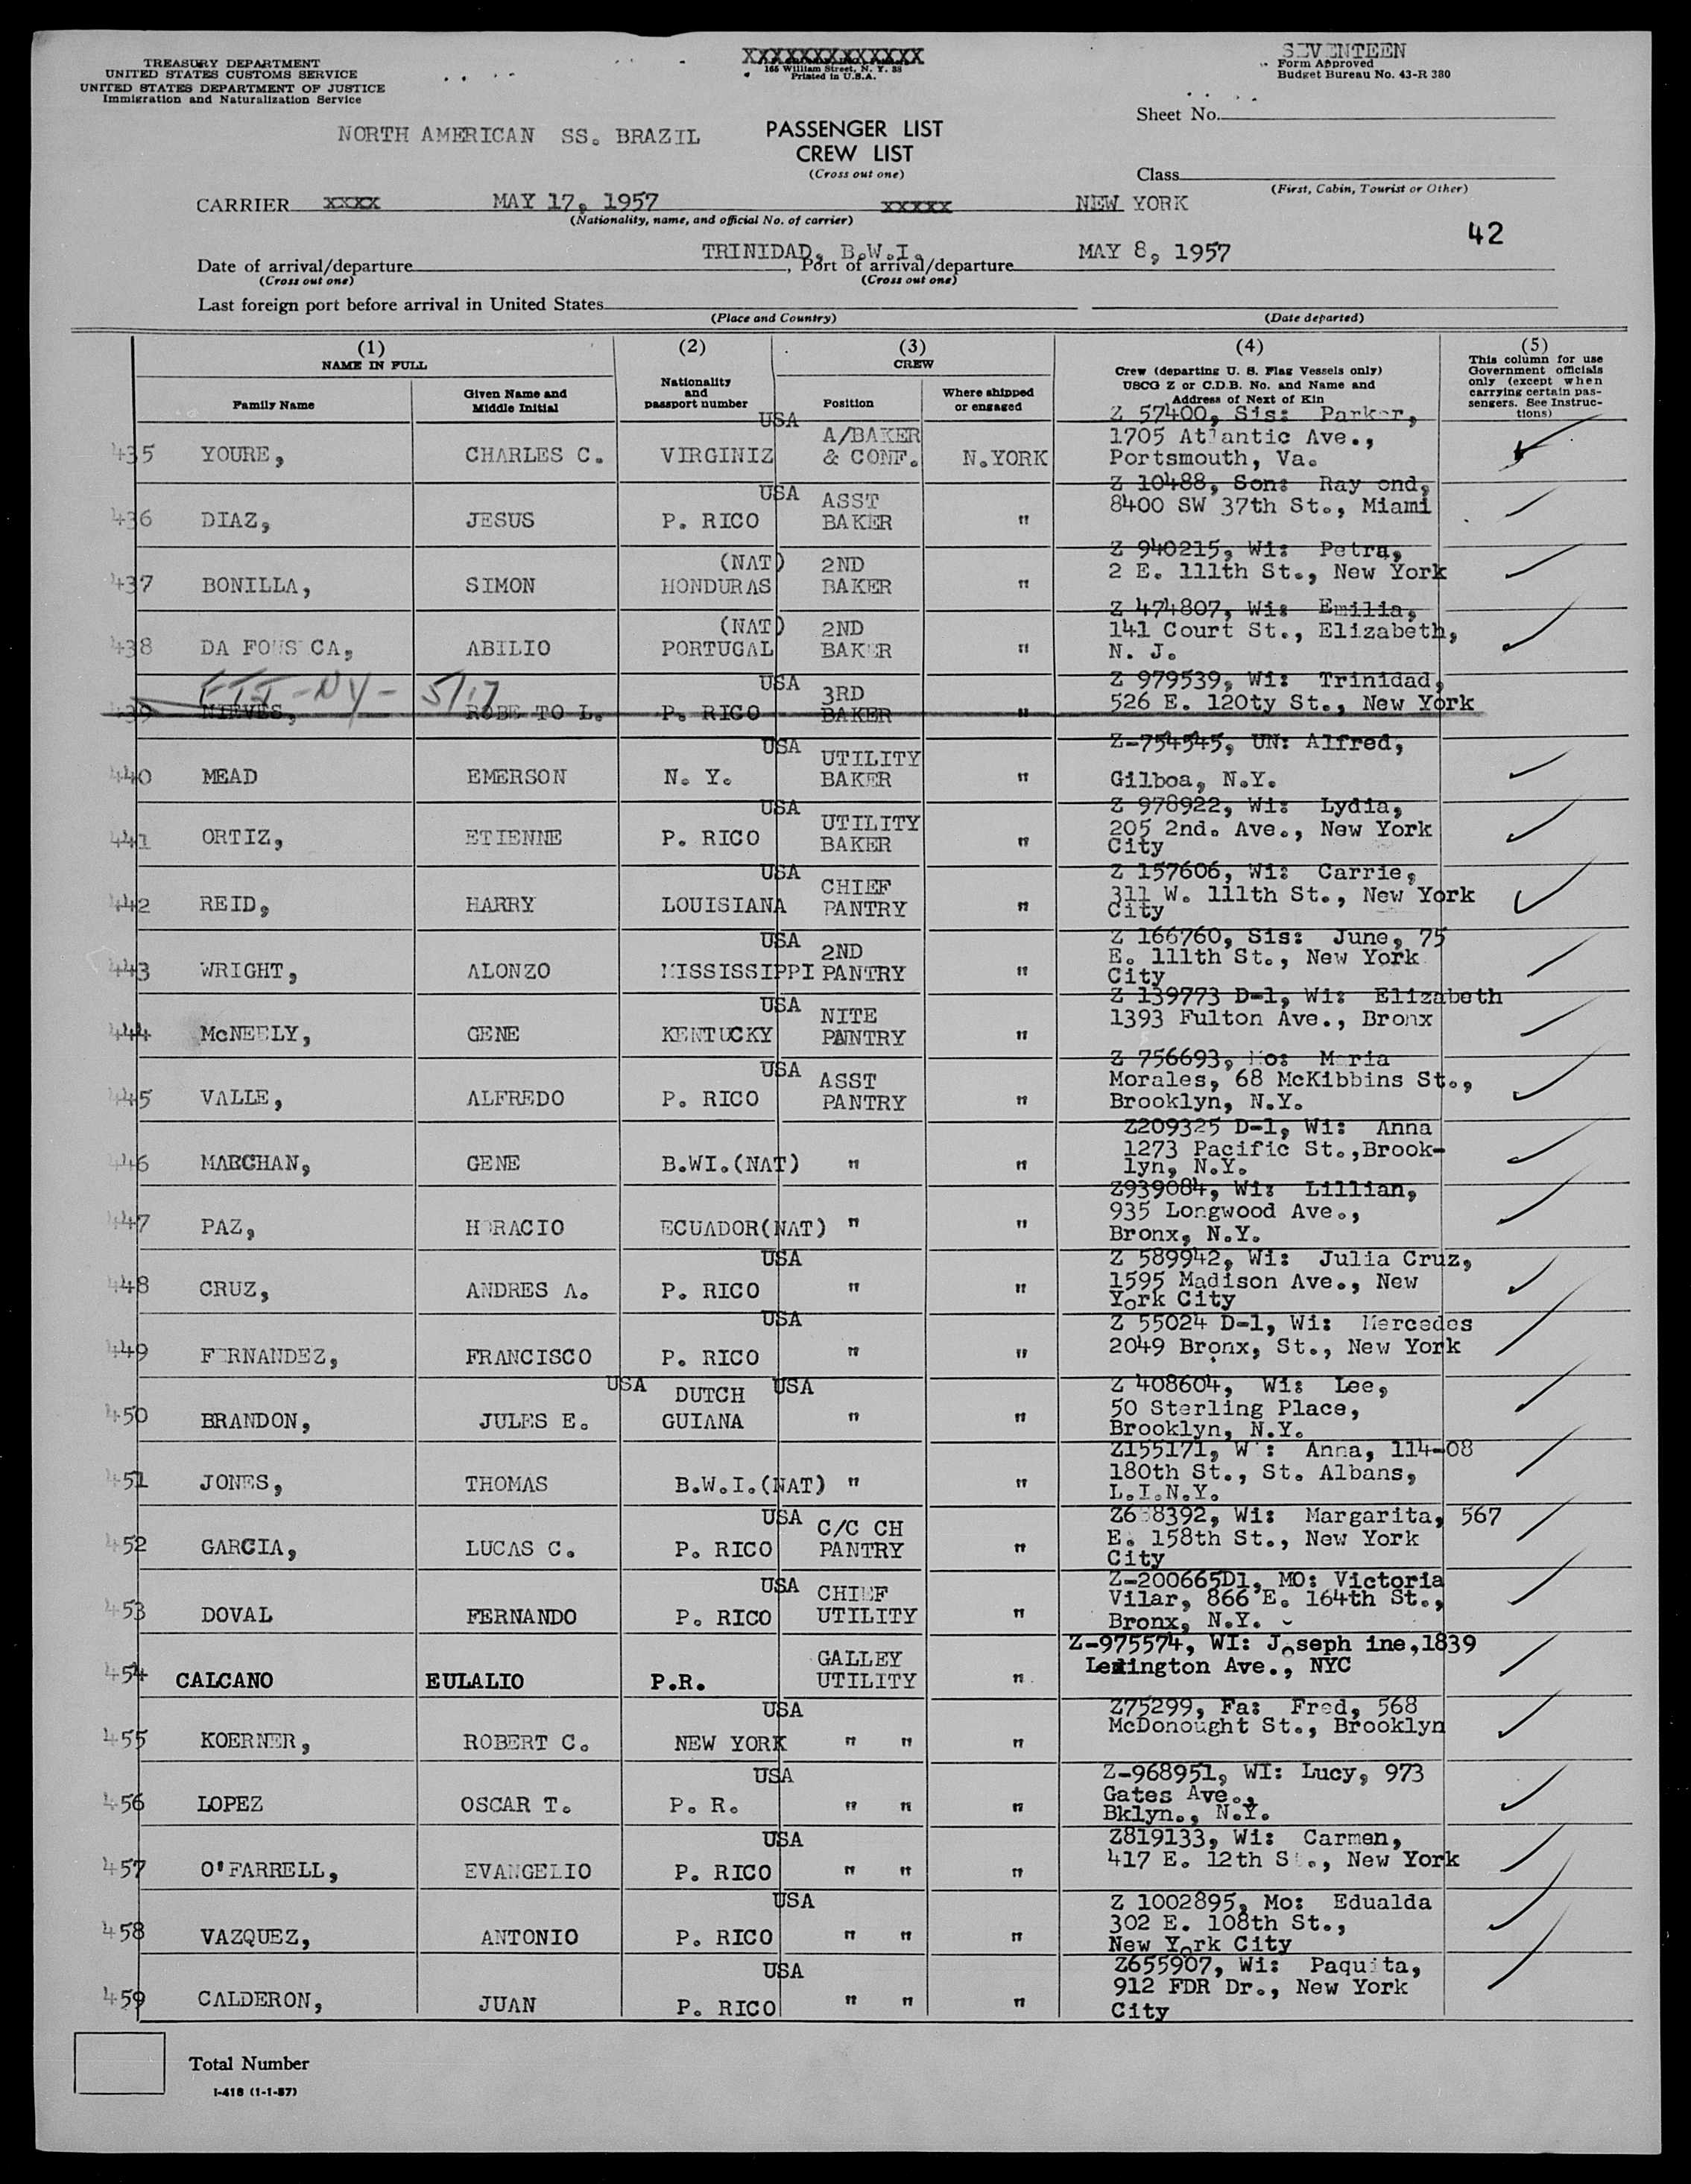 TREASURY DEPARTMENT
UNITED STATES CUSTOMS SERVICE
UNITED STATES DEPARTMENT OF JUSTICE
Immigration and Naturalization Service
XXXXXXXXXXXXX
166 William Street, N. Y. 38
Printed in U.S.A.
SEVENTEEN
Form Approved
Budget Bureau No. 43-R 380
Sheet No.
NORTH AMERICAN SS. BRAZIL
PASSENGER LIST
CREW LIST
(Cross out one)
Class
(First, Cabin, Tourist or Other)
CARRIER XXXX MAY 17, 1957 XXXXX NEW YORK
(Nationality, name, and official No. of carrier)
42
TRINIDAD, B.W.I. MAY 8, 1957
Date of arrival/departure , Port of arrival/departure
(Cross out one) (Cross out one)
Last foreign port before arrival in United States
(Place and Country) (Date departed)
(1) NAME IN FULL
Family Name
Given Name and Middle Initial
(2) Nationality and passport number
(3) CREW
Position
Where shipped or engaged
(4) Crew (departing U. S. Flag Vessels only) USCG Z or C.D.B. No. and Name and Address of Next of Kin
(5) This column for use Government officials only (except when carrying certain passengers. See Instructions)
435 YOURE, CHARLES C. USA VIRGINIZ A/BAKER & CONF. N.YORK Z 57400, Sis: Parker, 1705 Atlantic Ave., Portsmouth, Va.
436 DIAZ, JESUS USA P. RICO ASST BAKER " Z 10488, Son: Ray ond, 8400 SW 37th St., Miami
437 BONILLA, SIMON (NAT) HONDURAS 2ND BAKER " Z 940215, Wi: Petra, 2 E. 111th St., New York
438 DA FONS CA, ABILIO (NAT) PORTUGAL 2ND BAKER " Z 474807, Wi: Emilia, 141 Court St., Elizabeth, N. J.
FTJ-NY- 5/17
439 NIEVES, ROBE TO L. USA P. RICO 3RD BAKER " Z 979539, Wi: Trinidad, 526 E. 120ty St., New York
440 MEAD EMERSON USA N. Y. UTILITY BAKER " Z-754545, UN: Alfred, Gilboa, N.Y.
441 ORTIZ, ETIENNE USA P. RICO UTILITY BAKER " Z 978922, Wi: Lydia, 205 2nd. Ave., New York City
442 REID, HARRY USA LOUISIANA CHIEF PANTRY " Z 157606, Wi: Carrie, 311 W. 111th St., New York City
443 WRIGHT, ALONZO USA MISSISSIPPI 2ND PANTRY " Z 166760, Sis: June, 75 E. 111th St., New York City
444 McNEELY, GENE USA KENTUCKY NITE PANTRY " Z 139773 D-1, Wi: Elizabeth 1393 Fulton Ave., Bronx
445 VALLE, ALFREDO USA P. RICO ASST PANTRY " Z 756693, Mo: Maria Morales, 68 McKibbins St., Brooklyn, N.Y.
446 MARCHAN, GENE B.WI.(NAT) " " Z209325 D-1, Wi: Anna 1273 Pacific St.,Brook-lyn, N.Y.
447 PAZ, HORACIO ECUADOR(NAT) " " Z939084, Wi: Lillian, 935 Longwood Ave., Bronx, N.Y.
448 CRUZ, ANDRES A. USA P. RICO " " Z 589942, Wi: Julia Cruz, 1595 Madison Ave., New York City
449 FERNANDEZ, FRANCISCO USA P. RICO " " Z 55024 D-1, Wi: Mercedes 2049 Bronx, St., New York
450 BRANDON, JULES E. USA DUTCH GUIANA USA " " Z 408604, Wi: Lee, 50 Sterling Place, Brooklyn, N.Y.
451 JONES, THOMAS B.W.I.(NAT) " " Z155171, W : Anna, 114-08 180th St., St. Albans, L.I.N.Y.
452 GARCIA, LUCAS C. USA P. RICO C/C CH PANTRY " Wi: Margarita, 567 E. 158th St., New York City
453 DOVAL FERNANDO USA P. RICO CHIEF UTILITY " Z-200665D1, MO: Victoria Vilar, 866 E. 164th St., Bronx, N.Y.
454 CALCANO EULALIO P.R. GALLEY UTILITY " Z-975574, WI: Joseph ine,1839 Lexington Ave., NYC
455 KOERNER, ROBERT C. USA NEW YORK " " " Z75299, Fa: Fred, 568 McDonought St., Brooklyn
456 LOPEZ OSCAR T. USA P. R. " " " Z-968951, WI: Lucy, 973 Gates Ave., Bklyn., N.Y.
457 O'FARRELL, EVANGELIO USA P. RICO " " " Z819133, Wi: Carmen, 417 E. 12th St., New York
458 VAZQUEZ, ANTONIO USA P. RICO " " " Z 1002895, Mo: Edualda 302 E. 108th St., New York City
459 CALDERON, JUAN USA P. RICO " " " Z655907, Wi: Paquita, 912 FDR Dr., New York City
Total Number
I-418 (1-1-57)